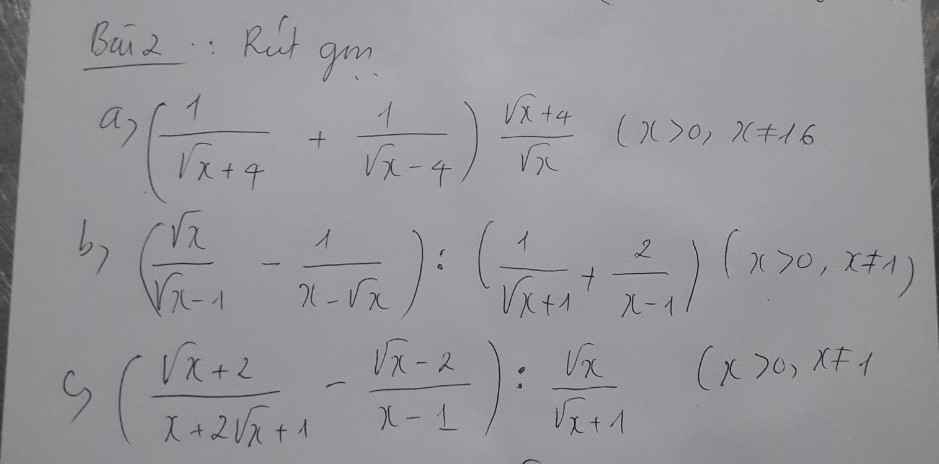 Bài 2 : Rút gọn
a) (1/(√x+4) + 1/(√x-4)) (√x+4)/√x (x>0, x≠16
b) (√x/(√x-1) - 1/(x-√x)) : (1/(√x+1) + 2/(x-1)) (x>0, x≠1)
c) ((√x+2)/(x+2√x+1) - (√x-2)/(x-1)) : √x/(√x+1) (x>0, x≠1